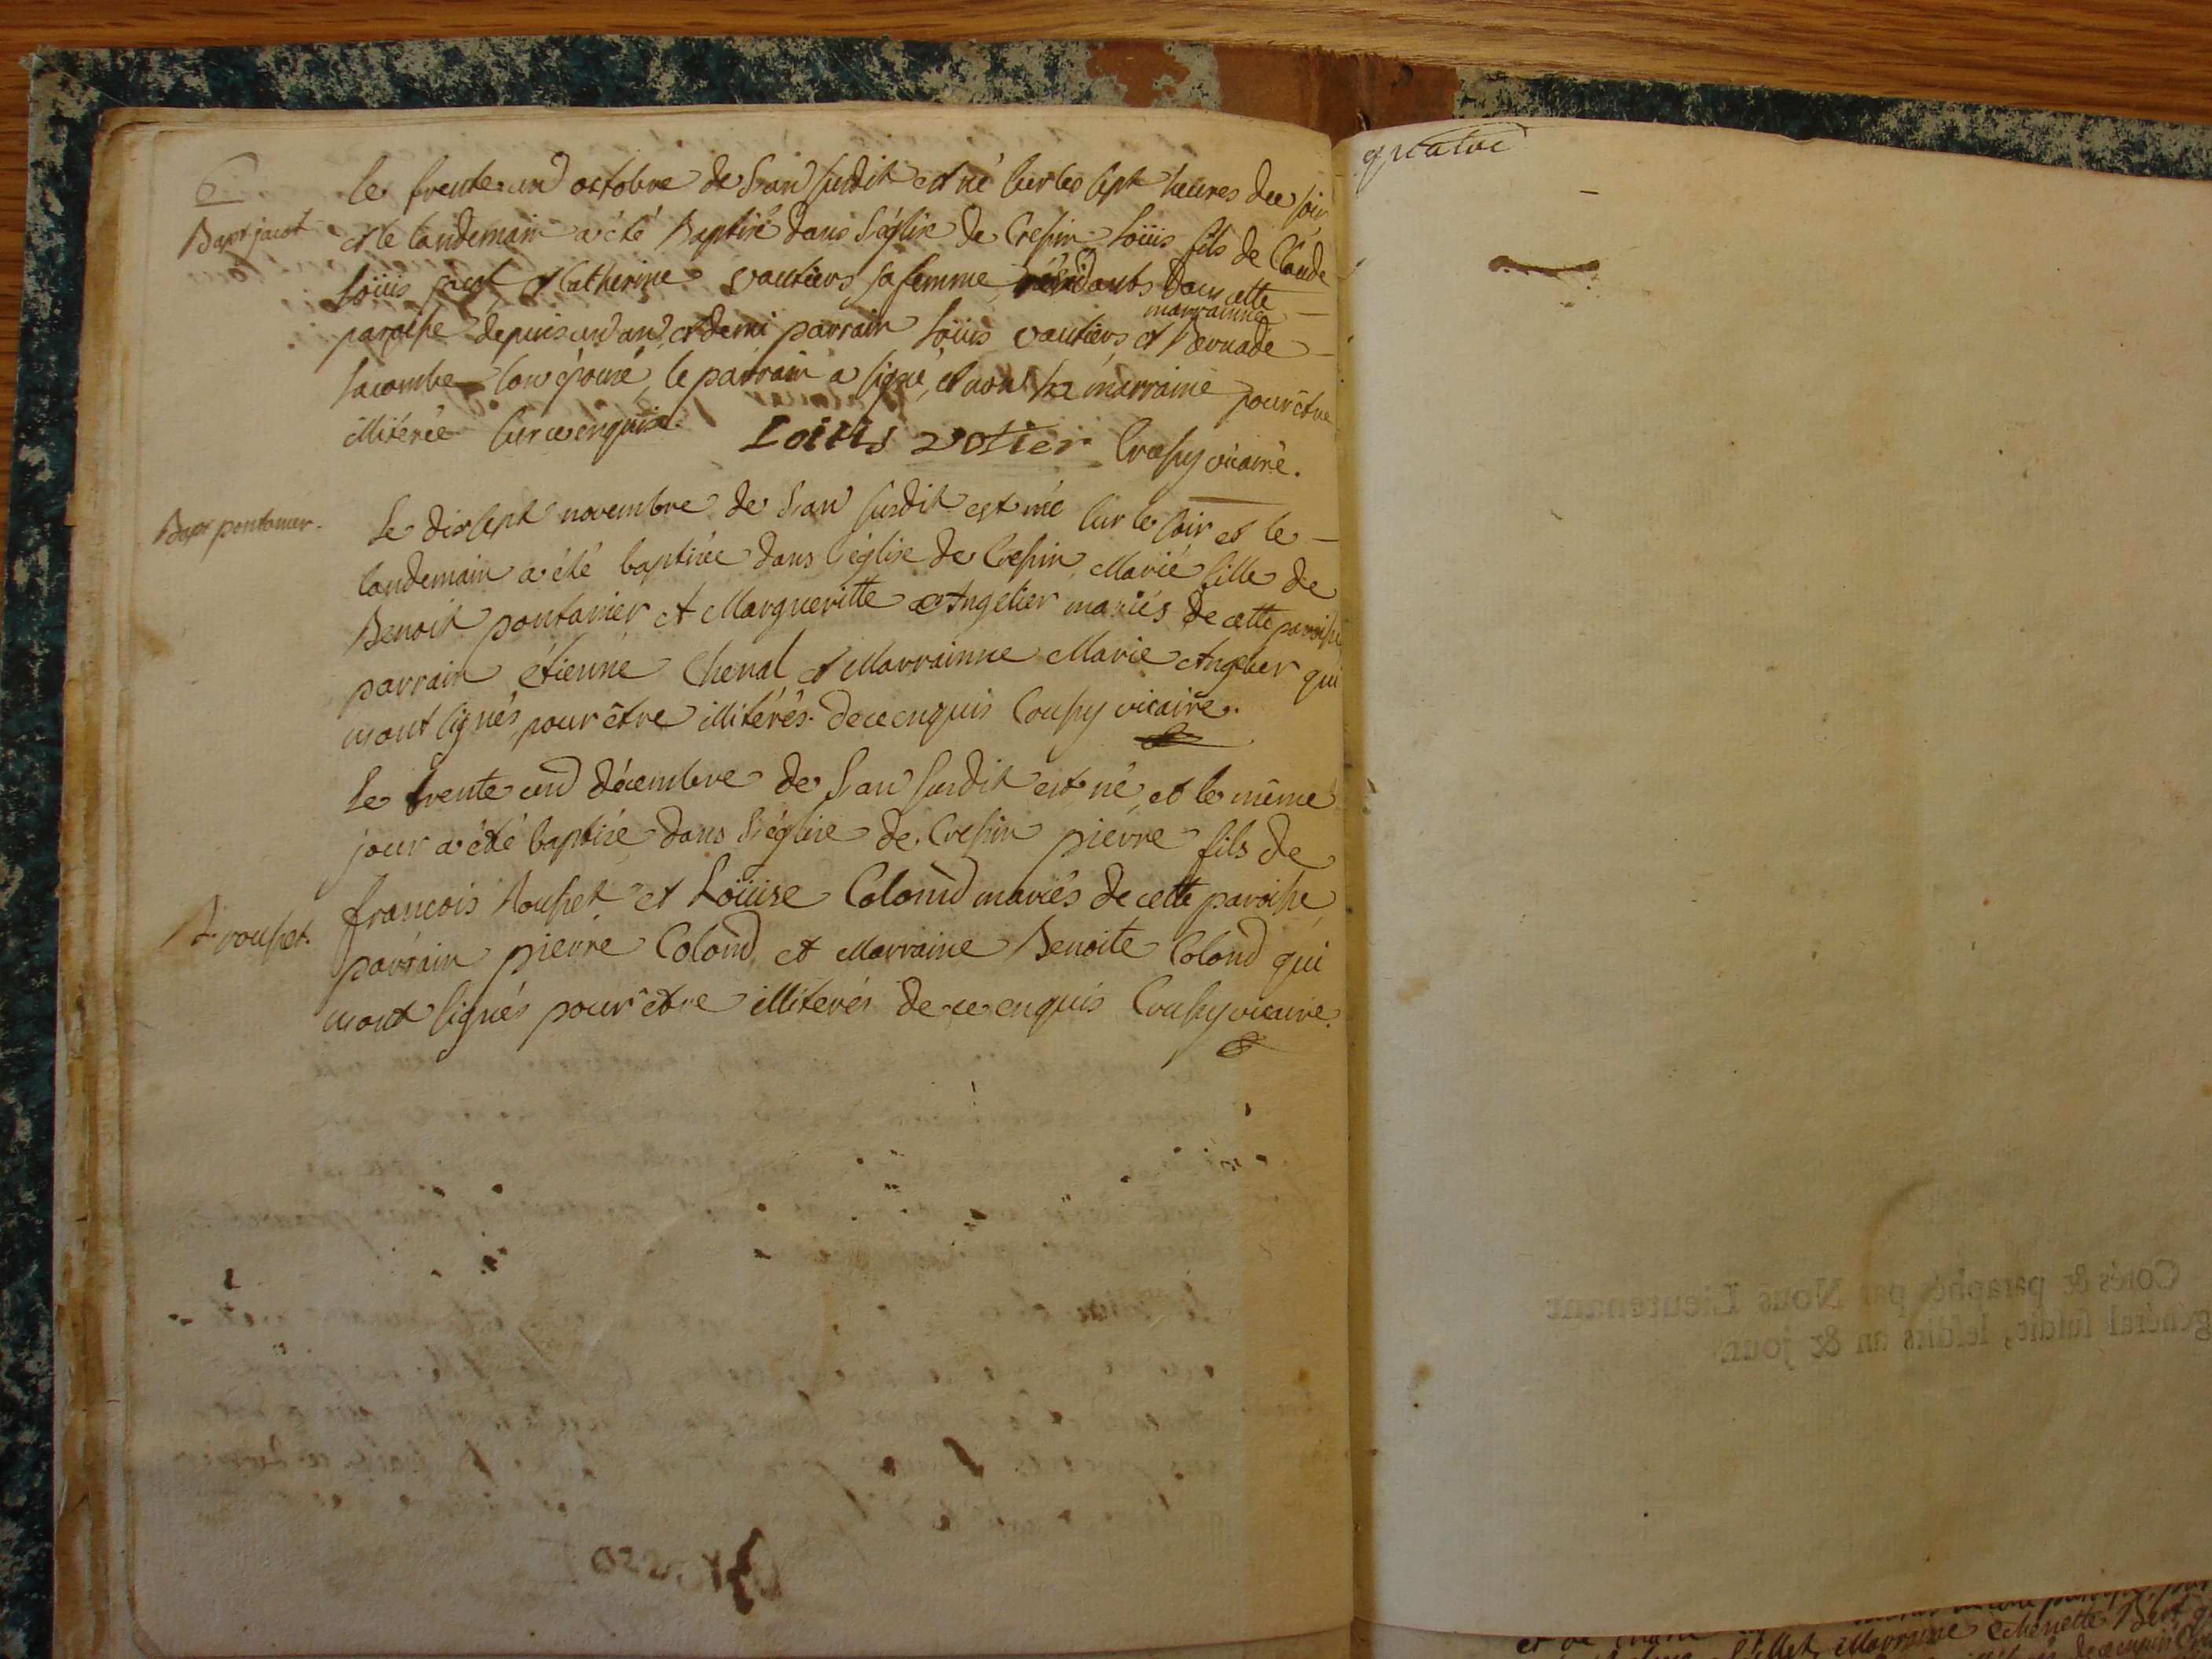 6
Bapt jacot
le trente un octobre de l'an susdit est né sur les sept heures du soir
et le landemain a été Baptisé dans l'église de Crespin Loüis fils de Claude
Loüis jacot et Catherine vautiers sa femme, résidants dans cette
paroisse depuis un an et demi parrain Loüis vautiers et marrainne Bernade
Lacombe son épouse, le parrain a signé, et non la marraine pour être
illitérée sur ce enquise. Loiiis votier Croupy vicaire.
Bapt pontanier.
Le dix sept novembre de l'an susdit est née sur le soir et le
landemain a été baptisée dans l'église de Crespin, Marie fille de
Benoit pontanier et Margueritte Angelier mariés de cette paroisse
parrain étienne Chenal et Marrainne Marie Angelier qui
n'ont signés, pour être illitérés. de ce enquis Croupy vicaire.
Le trente un décembre de l'an susdit est né, et le même
jour a été baptisé dans l'église de Crespin pierre fils de
B. rousset.
françois Rousset et Loüise Colomd mariés de cette paroisse,
parrain pierre Colomd et Marraine Benoite Colond qui
n'ont signés pour être illiterés de ce enquis Croupy vicaire.
quatre
Cotés & paraphés par Nous Lieutenant
général susdit, lesdits an & jour.
Marraine